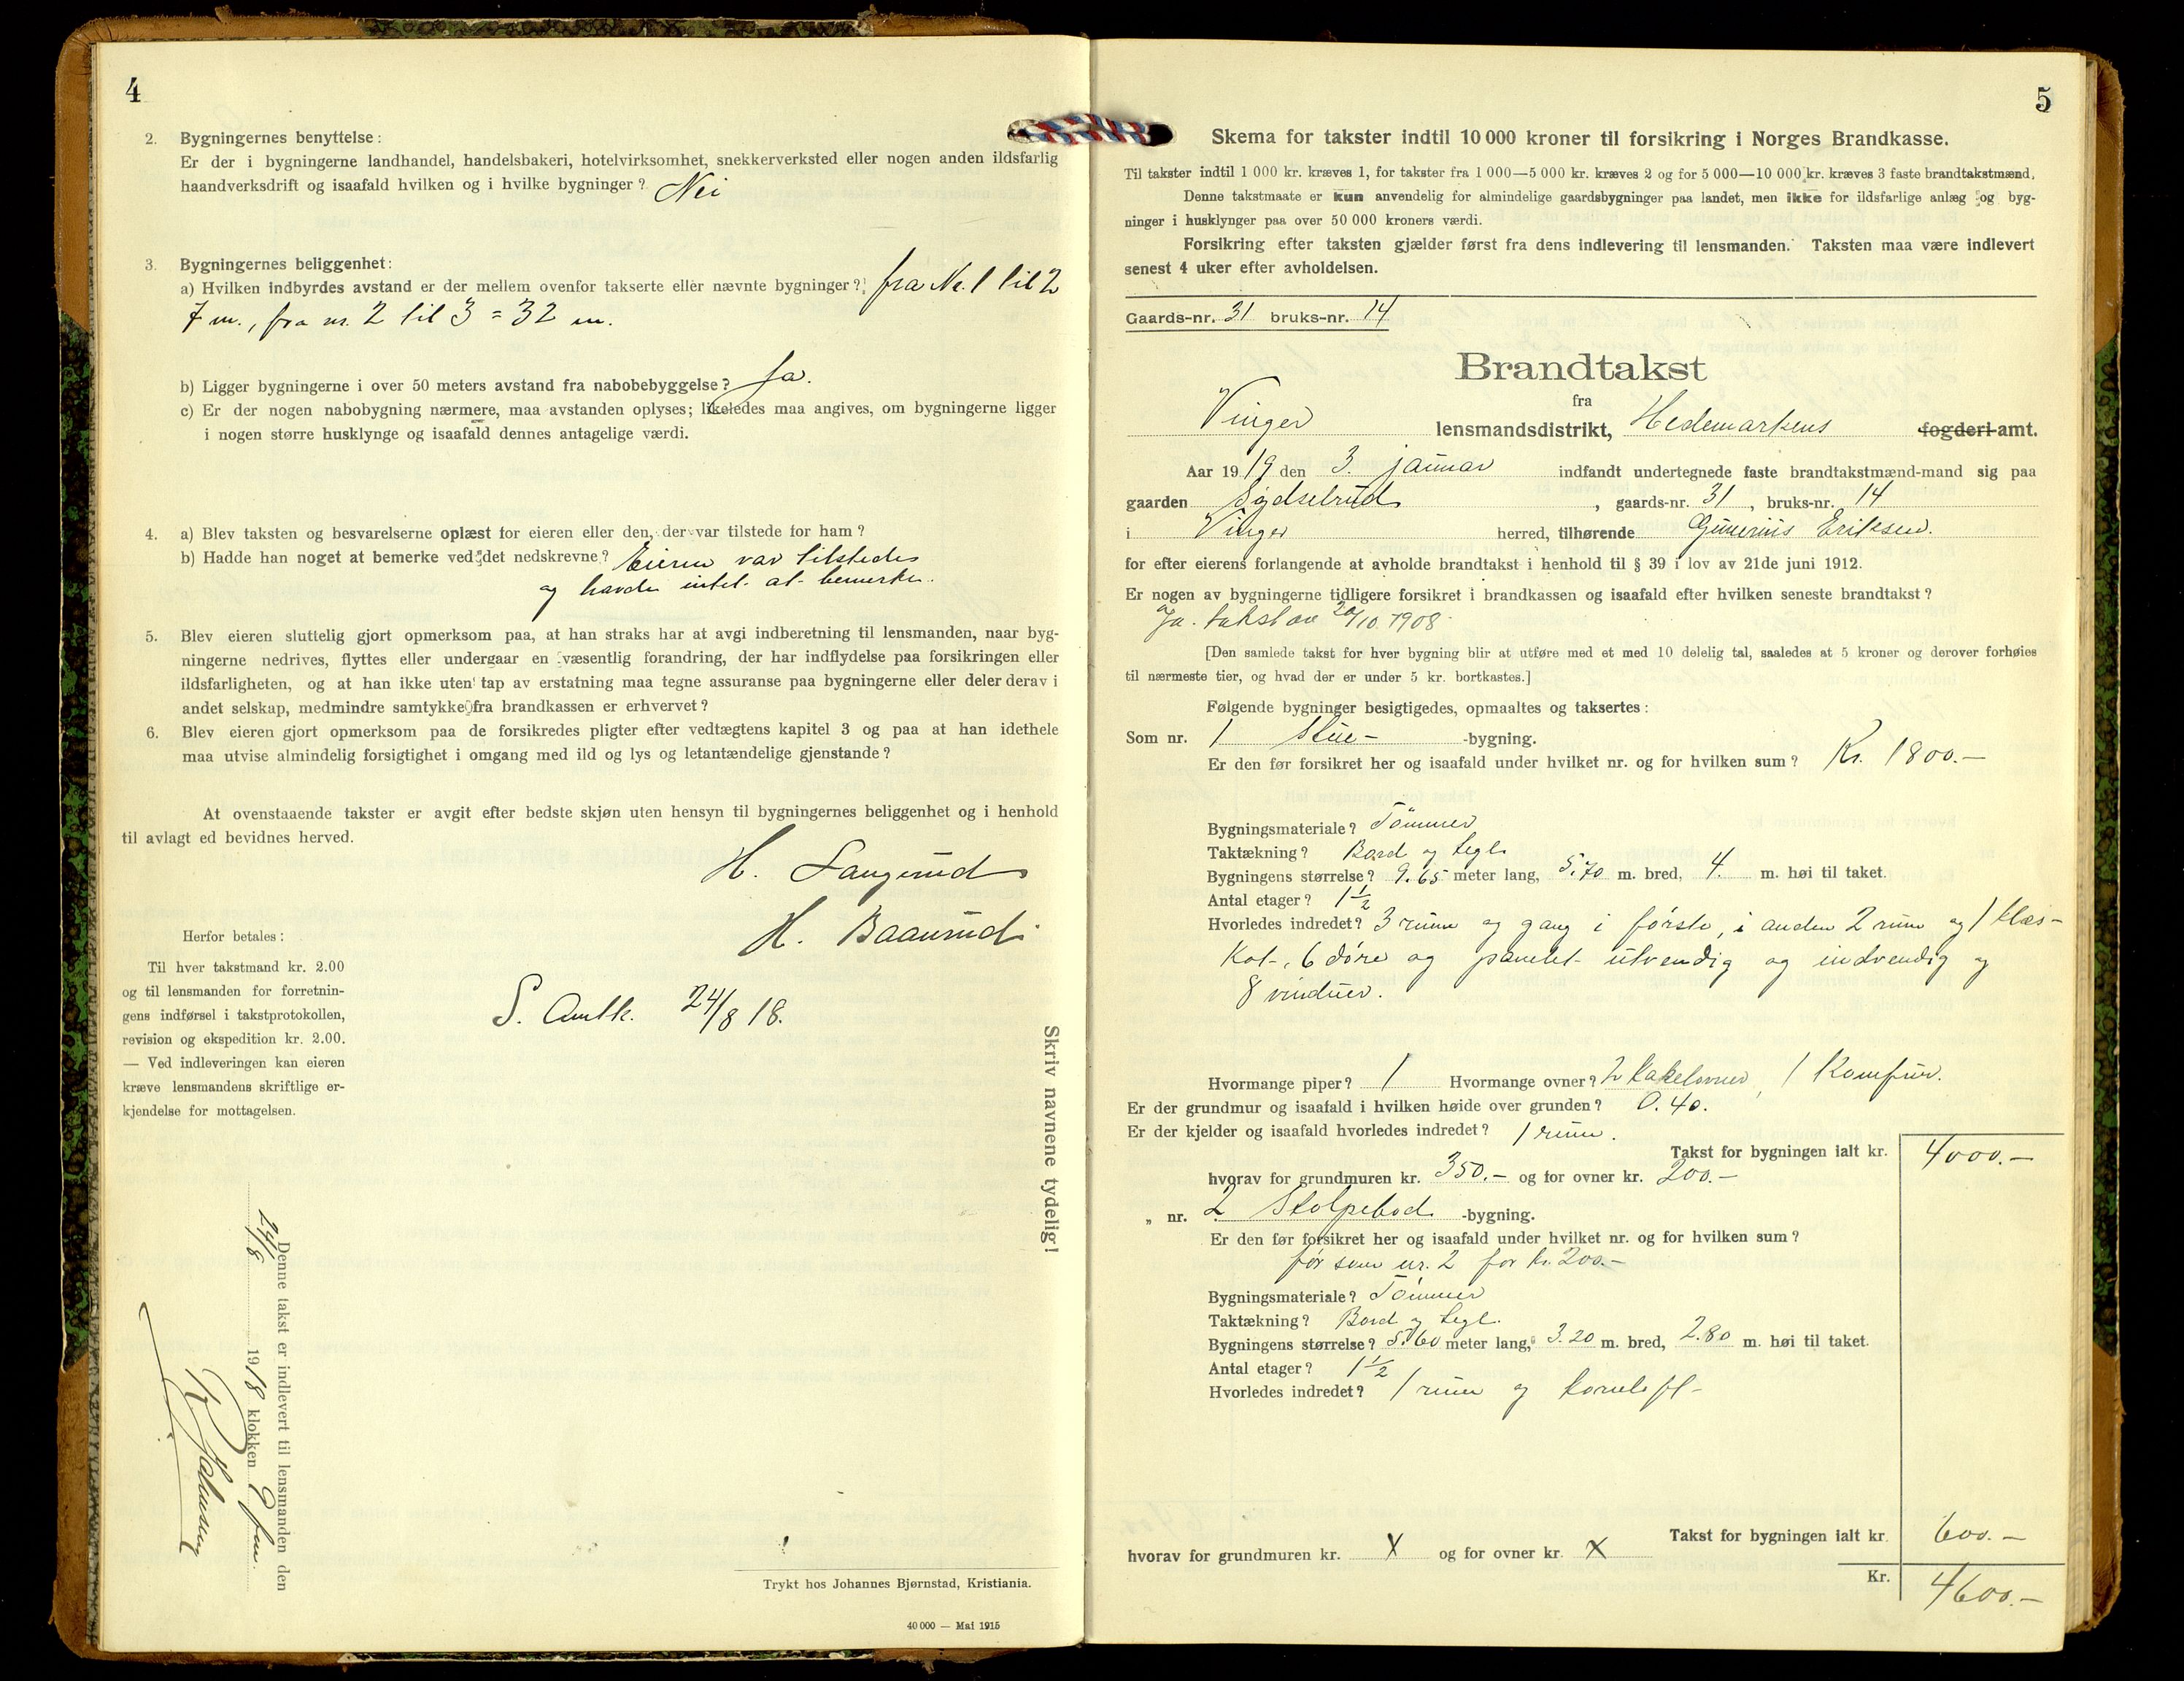 4
2. Bygningernes benyttelse:
Er der i bygningerne landhandel, handelsbakeri, hotelvirksomhet, snekkerverksted eller nogen anden ildsfarlig
haandverksdrift og isaafald hvilken og i hvilke bygninger? Nei
3. Bygningernes beliggenhet:
a) Hvilken indbyrdes avstand er der mellem ovenfor takserte eller nævnte bygninger? fra Nr. 1 til 2
7 m., fra nr. 2 til 3 = 32 m.
b) Ligger bygningerne i over 50 meters avstand fra nabobebyggelse? Ja.
c) Er der nogen nabobygning nærmere, maa avstanden oplyses; likeledes maa angives, om bygningerne ligger
i nogen større husklynge og isaafald dennes antagelige værdi.
4. a) Blev taksten og besvarelserne oplæst for eieren eller den, der var tilstede for ham?
b) Hadde han noget at bemerke ved det nedskrevne? Eieren var tilstedes
og havde intet at bemerke.
5. Blev eieren sluttelig gjort opmerksom paa, at han straks har at avgi indberetning til lensmanden, naar byg-
ningerne nedrives, flyttes eller undergaar en væsentlig forandring, der har indflydelse paa forsikringen eller
ildsfarligheten, og at han ikke uten tap av erstatning maa tegne assuranse paa bygningerne eller deler derav i
andet selskap, medmindre samtykke fra brandkassen er erhvervet?
6. Blev eieren gjort opmerksom paa de forsikredes pligter efter vedtægtens kapitel 3 og paa at han idethele
maa utvise almindelig forsigtighet i omgang med ild og lys og letantændelige gjenstande?
At ovenstaaende takster er avgit efter bedste skjøn uten hensyn til bygningernes beliggenhet og i henhold
til avlagt ed bevidnes herved.
H. Langerud
H. Baaurud
S. Amtk. 24/8 18.
Herfor betales:
Til hver takstmand kr. 2.00
og til lensmanden for forretnin-
gens indførsel i takstprotokollen,
revision og ekspedition kr. 2.00.
— Ved indleveringen kan eieren
kræve lensmandens skriftlige er-
kjendelse for mottagelsen.
Skriv navnene tydelig!
Denne takst er indlevert til lensmanden den
24/8 1918 klokken 9 fm.
Trykt hos Johannes Bjørnstad, Kristiania.
40 000 — Mai 1915
5
Skema for takster indtil 10 000 kroner til forsikring i Norges Brandkasse.
Til takster indtil 1 000 kr. kræves 1, for takster fra 1 000—5 000 kr. kræves 2 og for 5 000—10 000 kr. kræves 3 faste brandtakstmænd.
Denne takstmaate er kun anvendelig for almindelige gaardsbygninger paa landet, men ikke for ildsfarlige anlæg og byg-
ninger i husklynger paa over 50 000 kroners værdi.
Forsikring efter taksten gjælder først fra dens indlevering til lensmanden. Taksten maa være indlevert
senest 4 uker efter avholdelsen.
Gaards-nr. 31 bruks-nr. 14
Brandtakst
fra
Vinger lensmandsdistrikt, Hedemarkens fogderi-amt.
Aar 1919 den 3. januar indfandt undertegnede faste brandtakstmænd-mand sig paa
gaarden Sigdselrud, gaards-nr. 31, bruks-nr. 14
i Vinger herred, tilhørende Gunerius Eriksen.
for efter eierens forlangende at avholde brandtakst i henhold til § 39 i lov av 21de juni 1912.
Er nogen av bygningerne tidligere forsikret i brandkassen og isaafald efter hvilken seneste brandtakst?
Ja. takst av 20/10 1908
[Den samlede takst for hver bygning blir at utføre med et med 10 delelig tal, saaledes at 5 kroner og derover forhøies
til nærmeste tier, og hvad der er under 5 kr. bortkastes.]
Følgende bygninger besigtigedes, opmaaltes og taksertes:
Som nr. 1 Stue- -bygning.
Er den før forsikret her og isaafald under hvilket nr. og for hvilken sum? Kr. 1800.—
Bygningsmateriale? Tømmer
Taktækning? Bord og tegl.
Bygningens størrelse? 9.65 meter lang, 5.70 m. bred, 4. m. høi til taket.
Antal etager? 1 1/2
Hvorledes indredet? 3 rum og gang i første, i anden 2 rum og 1 klæs-
kot-, 6 døre og panelet utvendig og indvendig og
8 vinduer.
Hvormange piper? 1 Hvormange ovner? 2 kakelovner, 1 Komfur.
Er der grundmur og isaafald i hvilken høide over grunden? 0.40.
Er der kjelder og isaafald hvorledes indredet? 1 rum.
Takst for bygningen ialt kr. 4000.—
hvorav for grundmuren kr. 350.— og for ovner kr. 200.—
„ nr. 2 Stolpebod -bygning.
Er den før forsikret her og isaafald under hvilket nr. og for hvilken sum?
før som nr. 2 for kr. 200.—
Bygningsmateriale? Tømmer
Taktækning? Bord og tegl.
Bygningens størrelse? 5.60 meter lang, 3.20 m. bred, 2.80 m. høi til taket.
Antal etager? 1 1/2
Hvorledes indredet? 1 rum og kornloft-
Takst for bygningen ialt kr. 600.—
hvorav for grundmuren kr. X og for ovner kr. X
Kr. 4600.—